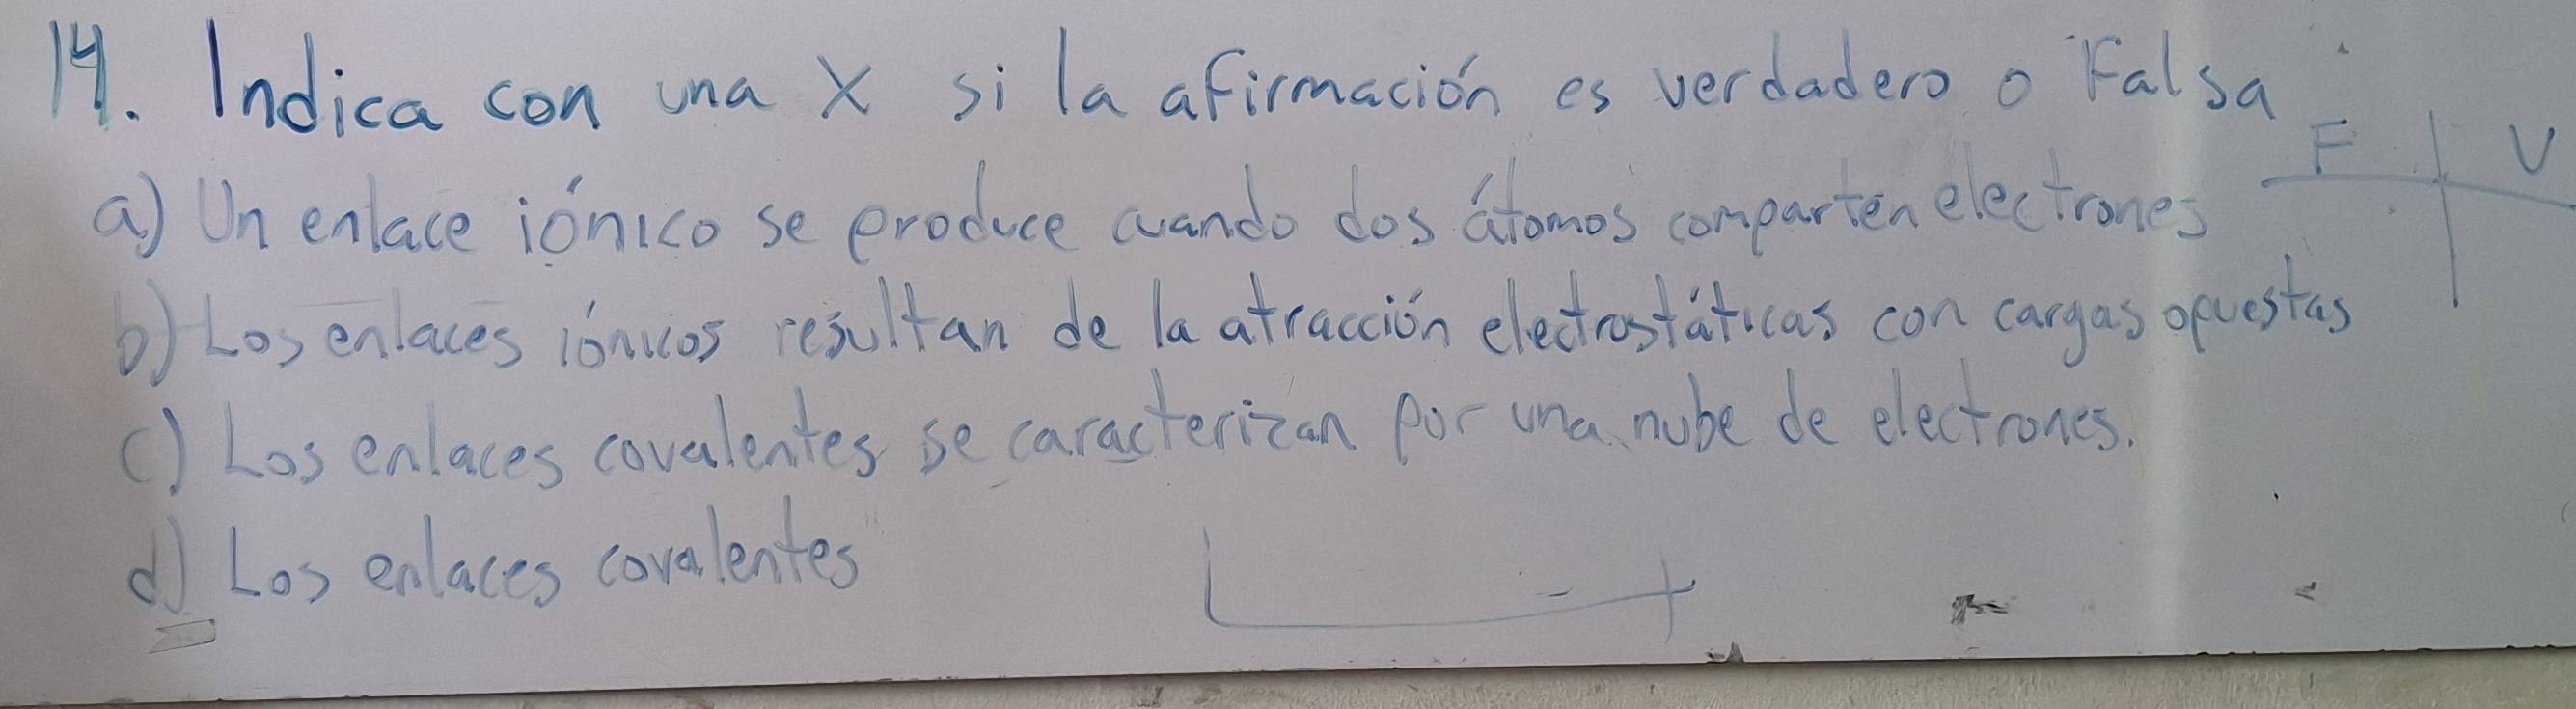 14. Indica con una X si la afirmación es verdadero o Falsa
F V
a) Un enlace iónico se produce cuando dos átomos comparten electrones
b) Los enlaces iónicos resultan de la atracción electrostáticas con cargas opuestas
c) Los enlaces covalentes se caracterizan por una nube de electrones.
d) Los enlaces covalentes